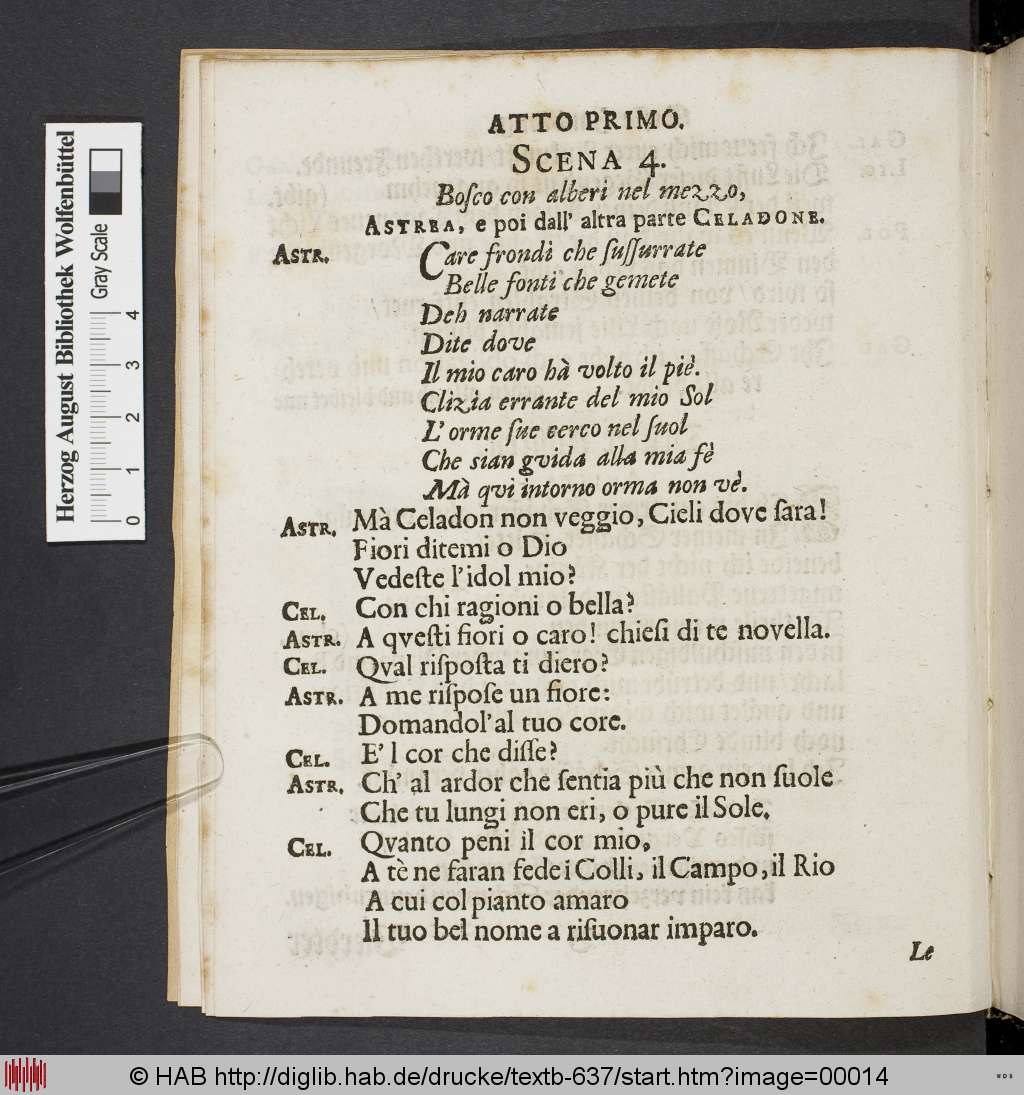 ATTO PRIMO.
SCENA 4.
Boſco con alberi nel mezzo,
ASTREA, e poi dall' altra parte CELADONE.
ASTR. Care frondi che ſuſſurrate
Belle fonti che gemete
Deh narrate
Dite dove
Il mio caro hà volto il piè.
Clizia errante del mio Sol
L' orme ſue cerco nel ſuol
Che sian gvida alla mia fè
Mà qvi intorno orma non vè.
ASTR. Mà Celadon non veggio, Cieli dove ſara!
Fiori ditemi o Dio
Vedeſte l'idol mio?
CEL. Con chi ragioni o bella?
ASTR. A qveſti fiori o caro! chieſi di te novella.
CEL. Qval riſpoſta ti diero?
ASTR. A me riſpoſe un fiore:
Domandol'al tuo core.
CEL. E' l cor che diſſe?
ASTR. Ch' al ardor che ſentia più che non ſuole
Che tu lungi non eri, o pure il Sole.
CEL. Qvanto peni il cor mio,
A tè ne faran fede i Colli, il Campo, il Rio
A cui col pianto amaro
Il tuo bel nome a riſuonar imparo.
Le
Herzog August Bibliothek Wolfenbüttel
Gray Scale
0 1 2 3 4
© HAB http://diglib.hab.de/drucke/textb-637/start.htm?image=00014
WDB